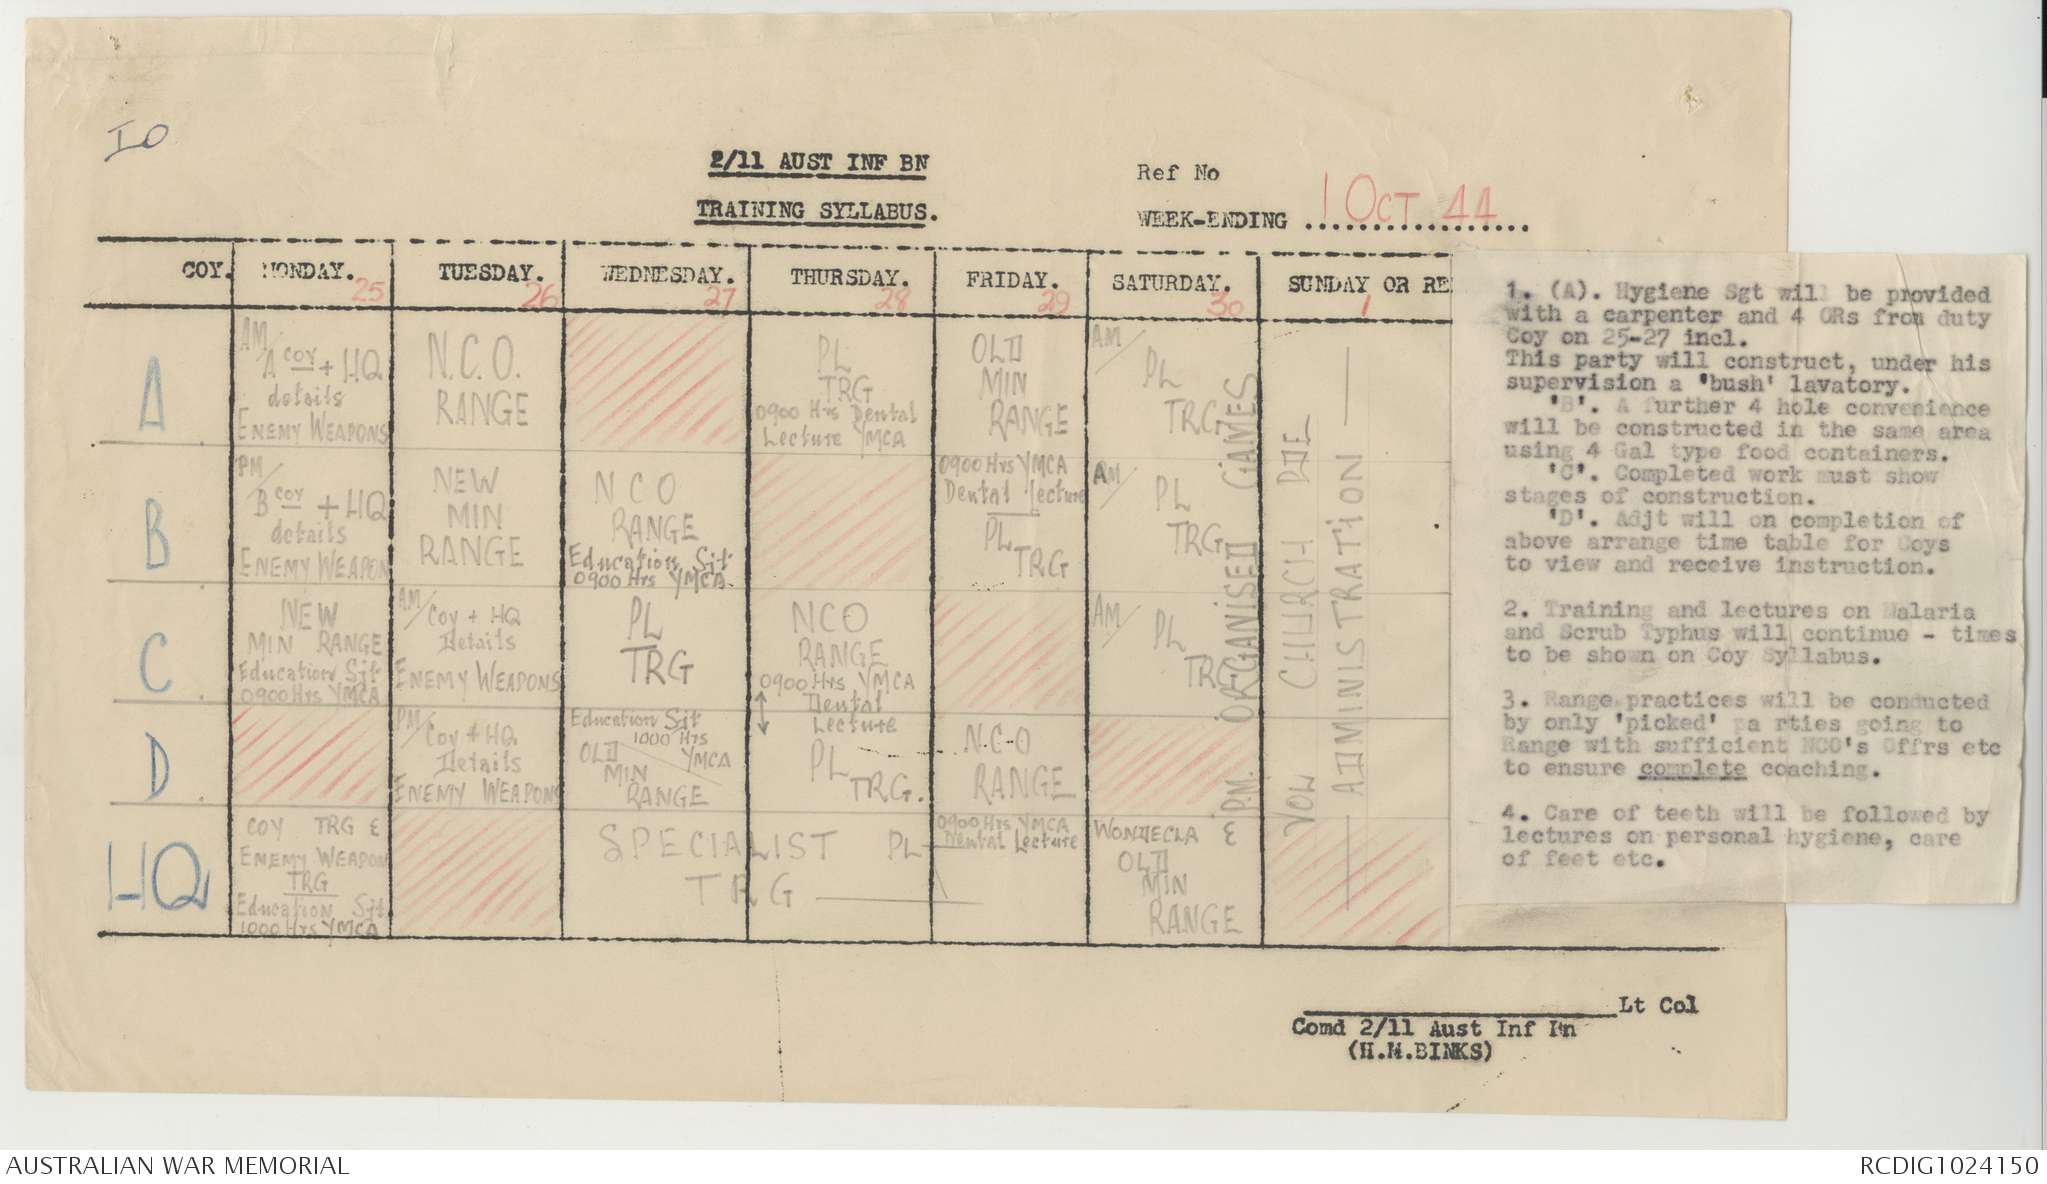 IO
2/11 AUST INF BN
TRAINING SYLLABUS.
Ref No
WEEK-ENDING 1 OCT 44
COY. MONDAY. 25 TUESDAY. 26 WEDNESDAY. 27 THURSDAY. 28 FRIDAY. 29 SATURDAY. 30 SUNDAY OR RE 1
A
AM/
A coy + HQ
details
ENEMY WEAPONS
N.C.O.
RANGE
PL
TRG
0900 Hrs Dental
Lecture YMCA
OLD
MIN
RANGE
AM/
PL
TRG
B
PM/
B coy + HQ
details
ENEMY WEAPON
NEW
MIN
RANGE
N C O
RANGE
Education Sjt
0900 Hrs YMCA.
0900 Hrs YMCA
Dental lecture
PL
TRG
AM/
PL
TRG
C
NEW
MIN RANGE
Education Sjt
0900 Hrs YMCA
AM/
Coy + HQ
Details
ENEMY WEAPONS
PL
TRG
NCO
RANGE
0900 Hrs YMCA
Dental
Lecture
AM/
PL
TRG
D
PM/
Coy + HQ
Details
ENEMY WEAPONS
Education Sjt
1000 Hrs
YMCA
OLD
MIN
RANGE
PL
TRG.
N.C.O
RANGE
HQ
COY TRG &
ENEMY WEAPON
TRG
Education Sjt
1000 Hrs YMCA
SPECIALIST PL
TRG
0900 Hrs YMCA
Dental Lecture
WONDECLA &
OLD
MIN
RANGE
P.M. ORGANISED GAMES
VOL CHURCH PDE
— ADMINISTRATION —
1. (A). Hygiene Sgt will be provided
with a carpenter and 4 ORs from duty
Coy on 25-27 incl.
This party will construct, under his
supervision a 'bush' lavatory.
'B'. A further 4 hole convenience
will be constructed in the same area
using 4 Gal type food containers.
'C'. Completed work must show
stages of construction.
'D'. Adjt will on completion of
above arrange time table for Coys
to view and receive instruction.
2. Training and lectures on Malaria
and Scrub Typhus will continue - times
to be shown on Coy Syllabus.
3. Range practices will be conducted
by only 'picked' pa rties going to
Range with sufficient NCO's Offrs etc
to ensure complete coaching.
4. Care of teeth will be followed by
lectures on personal hygiene, care
of feet etc.
Lt Col
Comd 2/11 Aust Inf Bn
(H.M.BINKS)
AUSTRALIAN WAR MEMORIAL
RCDIG1024150